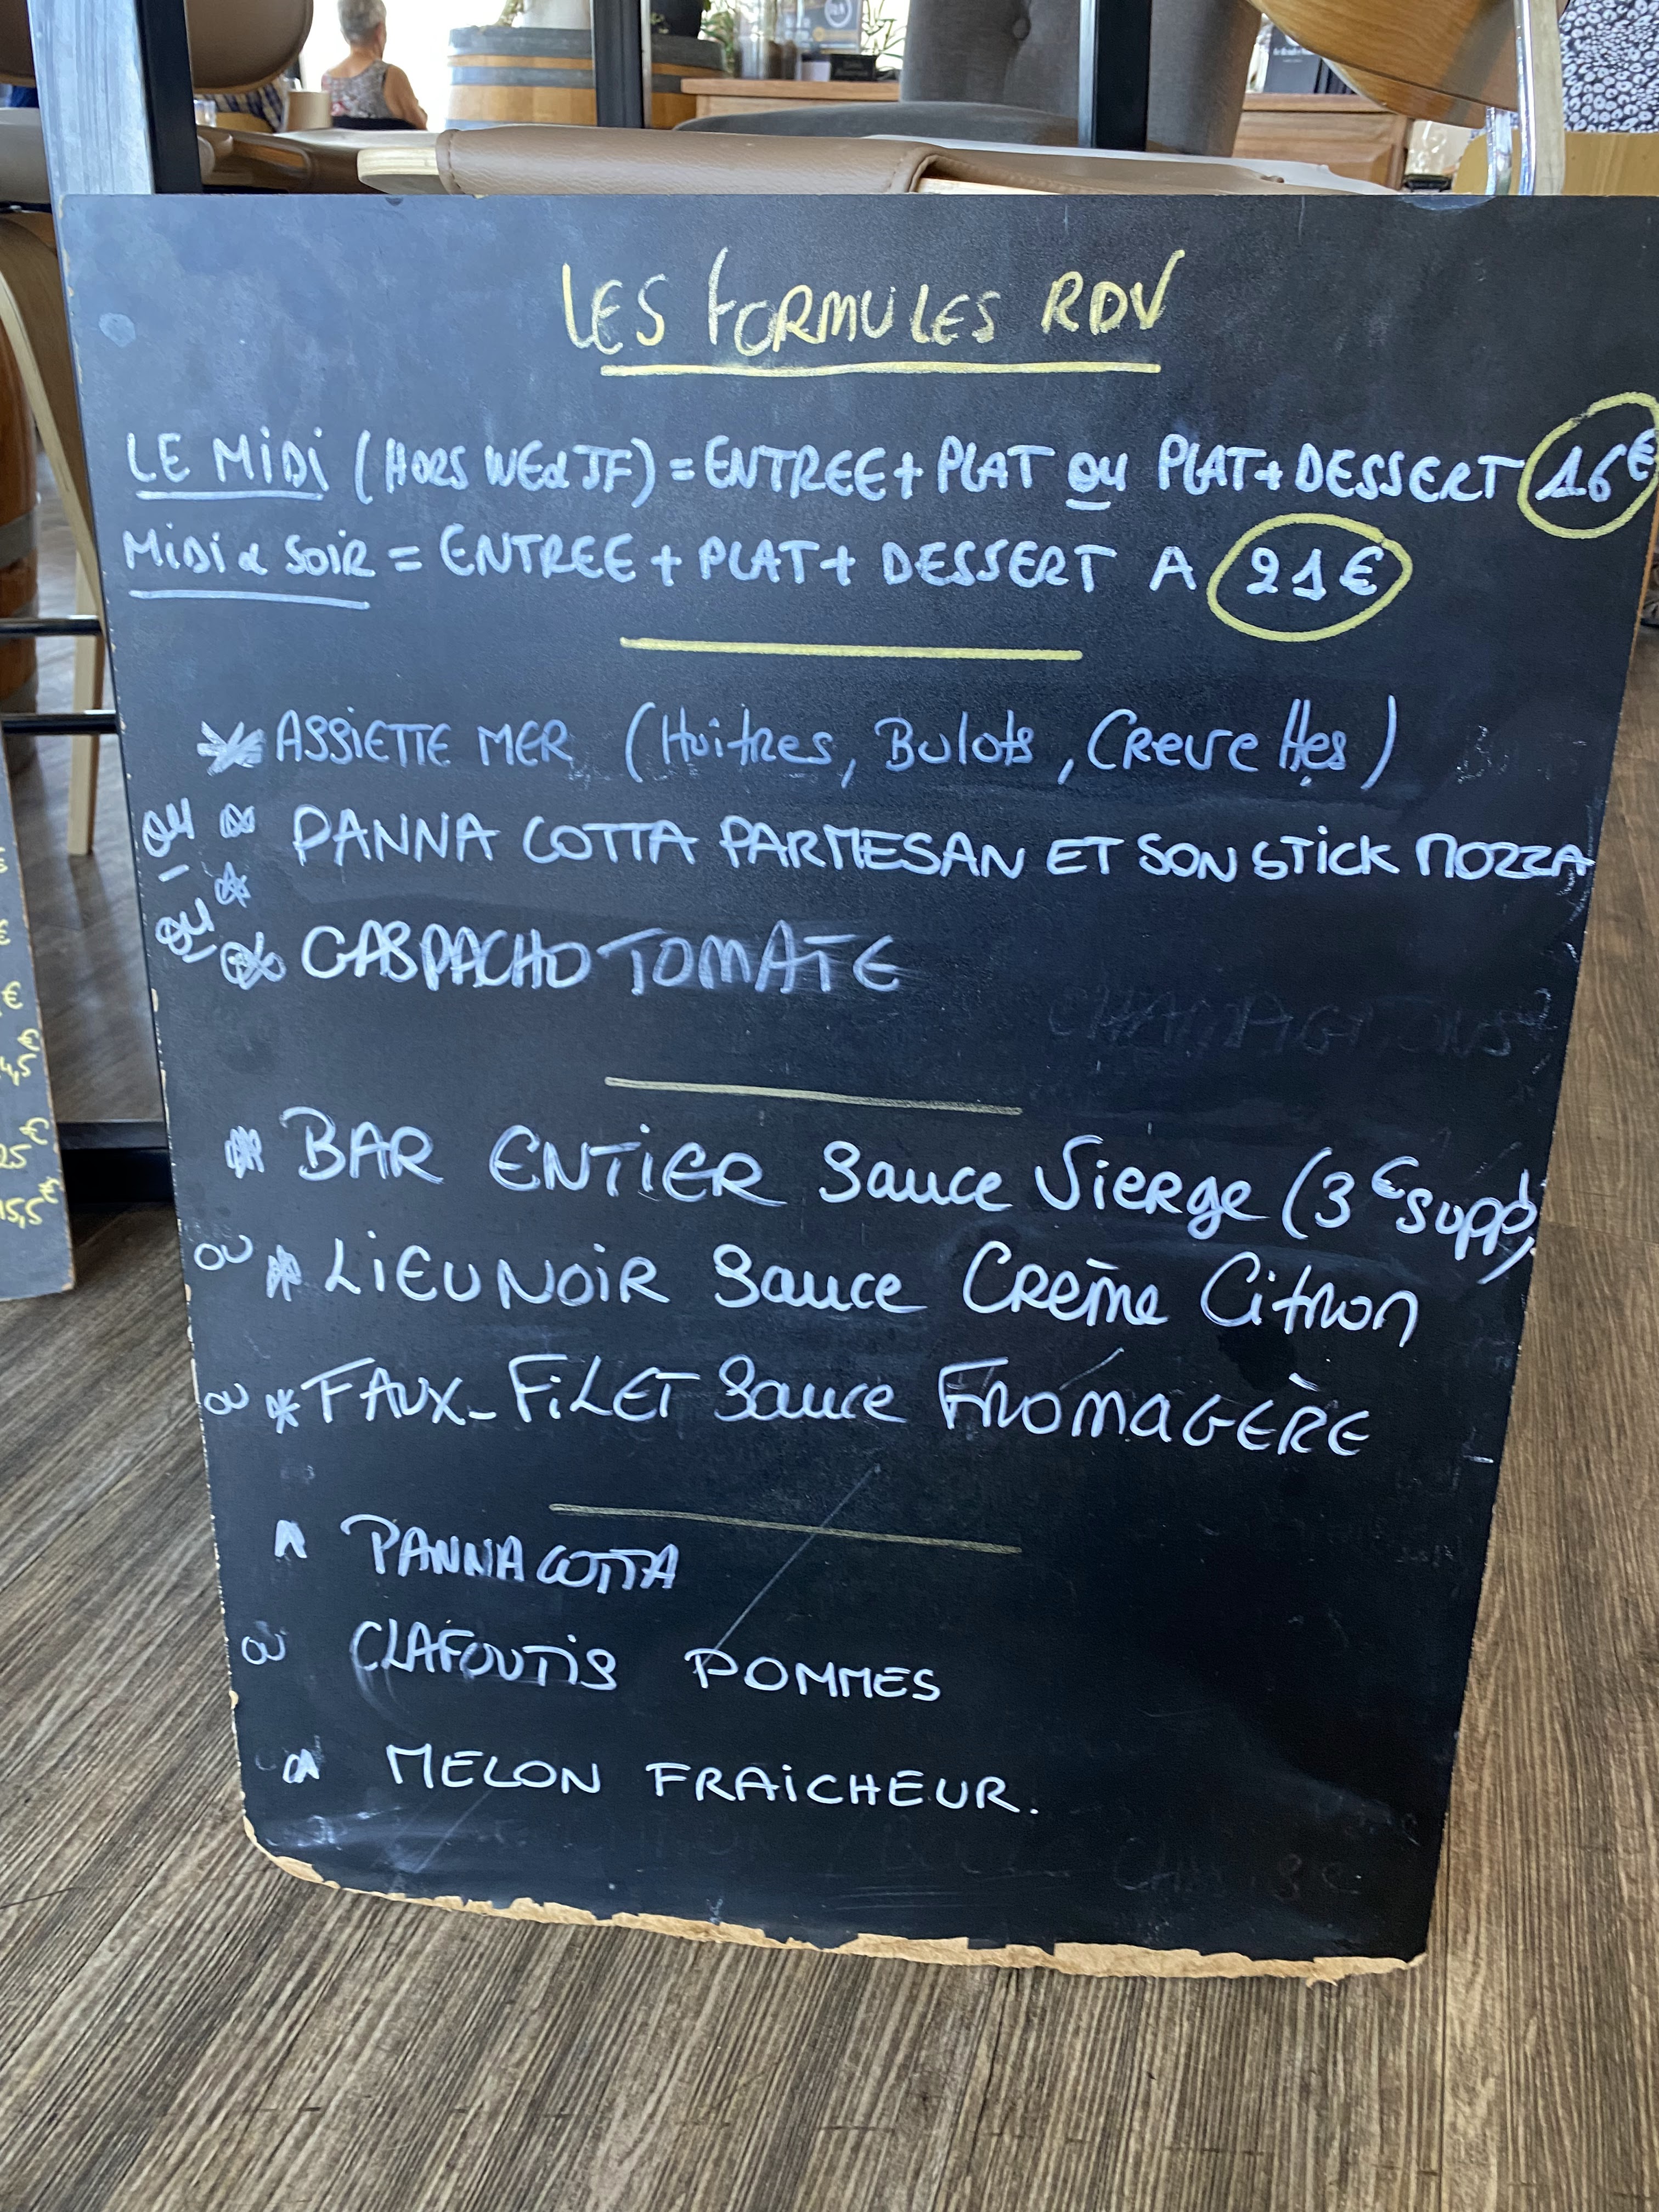 LES FORMULES RDV
LE MIDI (HORS WE & JF) = ENTREE + PLAT OU PLAT + DESSERT 16€
MIDI & SOIR = ENTREE + PLAT + DESSERT A 21€
* ASSIETTE MER (Huitres, Bulots, Crevettes)
OU * PANNA COTTA PARMESAN ET SON STICK MOZZA
*
OU * GASPACHO TOMATE
* BAR ENTIER Sauce Vierge (3€ supp)
OU * LIEU NOIR Sauce Crème Citron
OU * FAUX-FILET Sauce FROMAGÈRE
PANNA COTTA
OU CLAFOUTIS POMMES
MELON FRAICHEUR.
€
€
4,5€
25€
15,5€